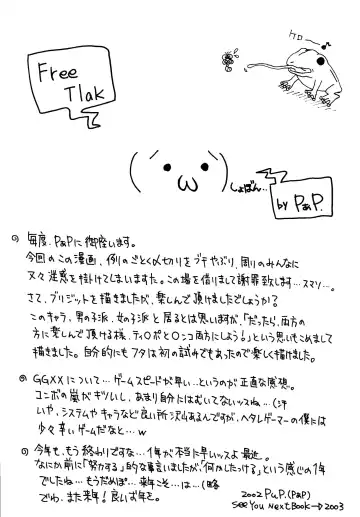 Free
Tlak
ケロー♪
(´・ω・`)
しょぼん…
by PaP.
毎度、PaPに御座います。
今回のこの漫画、例のごとく〆切りをブチやぶり、周りのみんなに
又々迷惑を掛けてしまいますた。この場を借りまして謝罪致します…スマソ…。
さて、ブリジットを描きましたが、楽しんで頂けましたでしょうか?
このキャラ、男の子派、女の子派と居るとは思いますが、「だったら、両方の
方に楽しんで頂ける様、チィ○ポと○ンコ両方にしよう!」という思いをこめまして
描きました。自分的にもフタは初の試みでもあったので楽しく描けました。
GGXXについて…ゲームスピードが早い…というのが正直な感想。
コンボの嵐がキツいし、あまり自分にはむいてないッスね…(汗
いや、システムやキャラなど良い所沢山あるんですが、ヘタレゲーマーの僕には
少々辛いゲームだなと…w
今年も、もう終わりですな…1年が本当に早いッスよ最近。
なにか前に「努力する」的な事言いましたが、「何かしたっける」という感じの1年
でしたね…もうだめぽ…来年こそ…は…(略
でわ、また来年!良いお年を。
2002 PaP.(PAP)
See You Next Book→2003